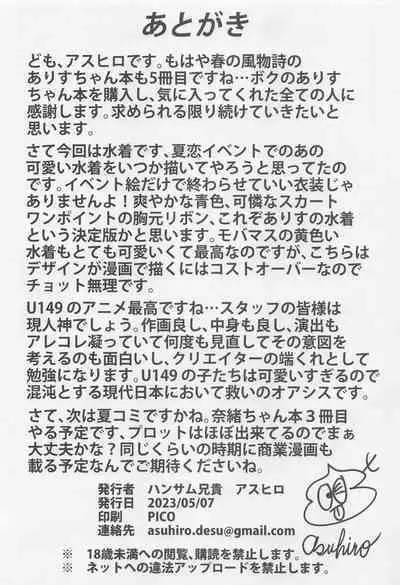 あとがき
ども、アスヒロです。もはや春の風物詩の
ありすちゃん本も5冊目ですね…ボクのありす
ちゃん本を購入し、気に入ってくれた全ての人に
感謝します。求められる限り続けていきたいと
思います。
さて今回は水着です、夏恋イベントでのあの
可愛い水着をいつか描いてやろうと思ってたの
です。イベント絵だけで終わらせていい衣装じゃ
ありませんよ！爽やかな青色、可憐なスカート
ワンポイントの胸元リボン、これぞありすの水着
という決定版かと思います。モバマスの黄色い
水着もとても可愛いくて最高なのですが、こちらは
デザインが漫画で描くにはコストオーバーなので
チョット無理です。
U149のアニメ最高ですね…スタッフの皆様は
現人神でしょう。作画良し、中身も良し、演出も
アレコレ凝っていて何度も見直してその意図を
考えるのも面白いし、クリエイターの端くれとして
勉強になります。U149の子たちは可愛いすぎるので
混沌とする現代日本において救いのオアシスです。
さて、次は夏コミですかね。奈緒ちゃん本３冊目
やる予定です、プロットはほぼ出来てるのでまぁ
大丈夫かな？同じくらいの時期に商業漫画も
載る予定なんでご期待くださいね。
発行者 ハンサム兄貴 アスヒロ
発行日 2023/05/07
印刷 PICO
連絡先 asuhiro.desu@gmail.com
asuhiro
※ 18歳未満への閲覧、購読を禁止します。
※ ネットへの違法アップロードを禁止します。